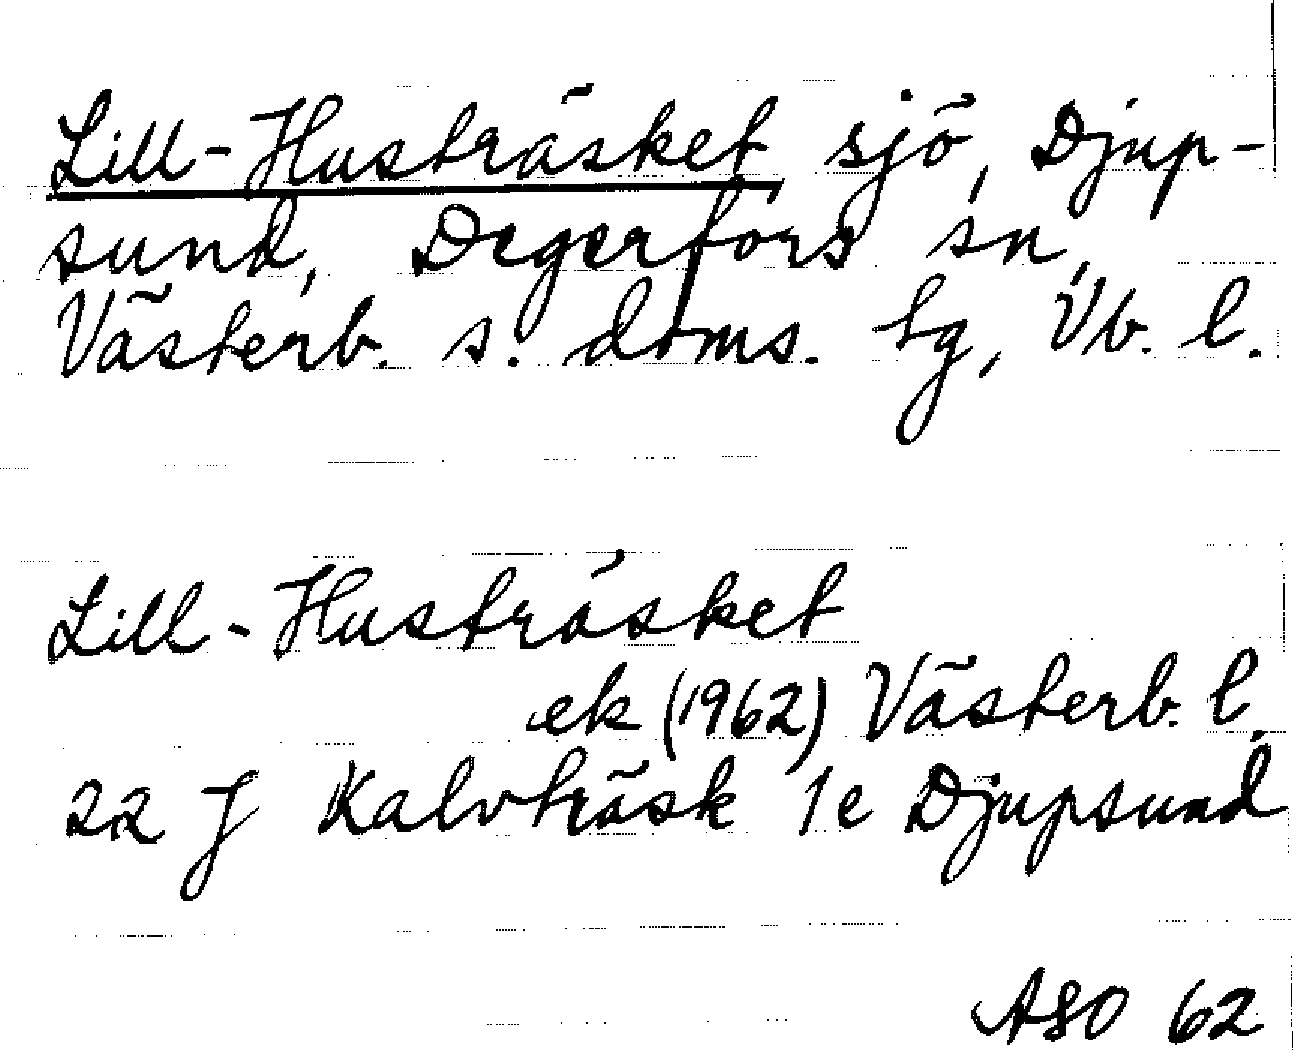 Lill-Husträsket sjö, Djup-
sund, Degerfors sn,
Västerb. s. doms. tg, Vb. l.
Lill-Husträsket
ek (1962) Västerb. l.
22 J Kalvträsk 1e Djupsund
ASO 62